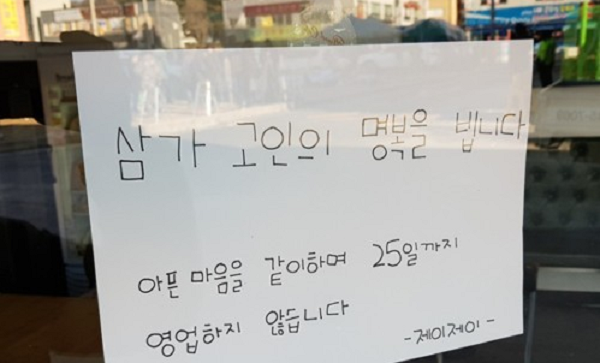 삼가 고인의 명복을 빕니다
아픈 마음을 같이하며 25일까지
영업하지 않듭니다
-제이제이-